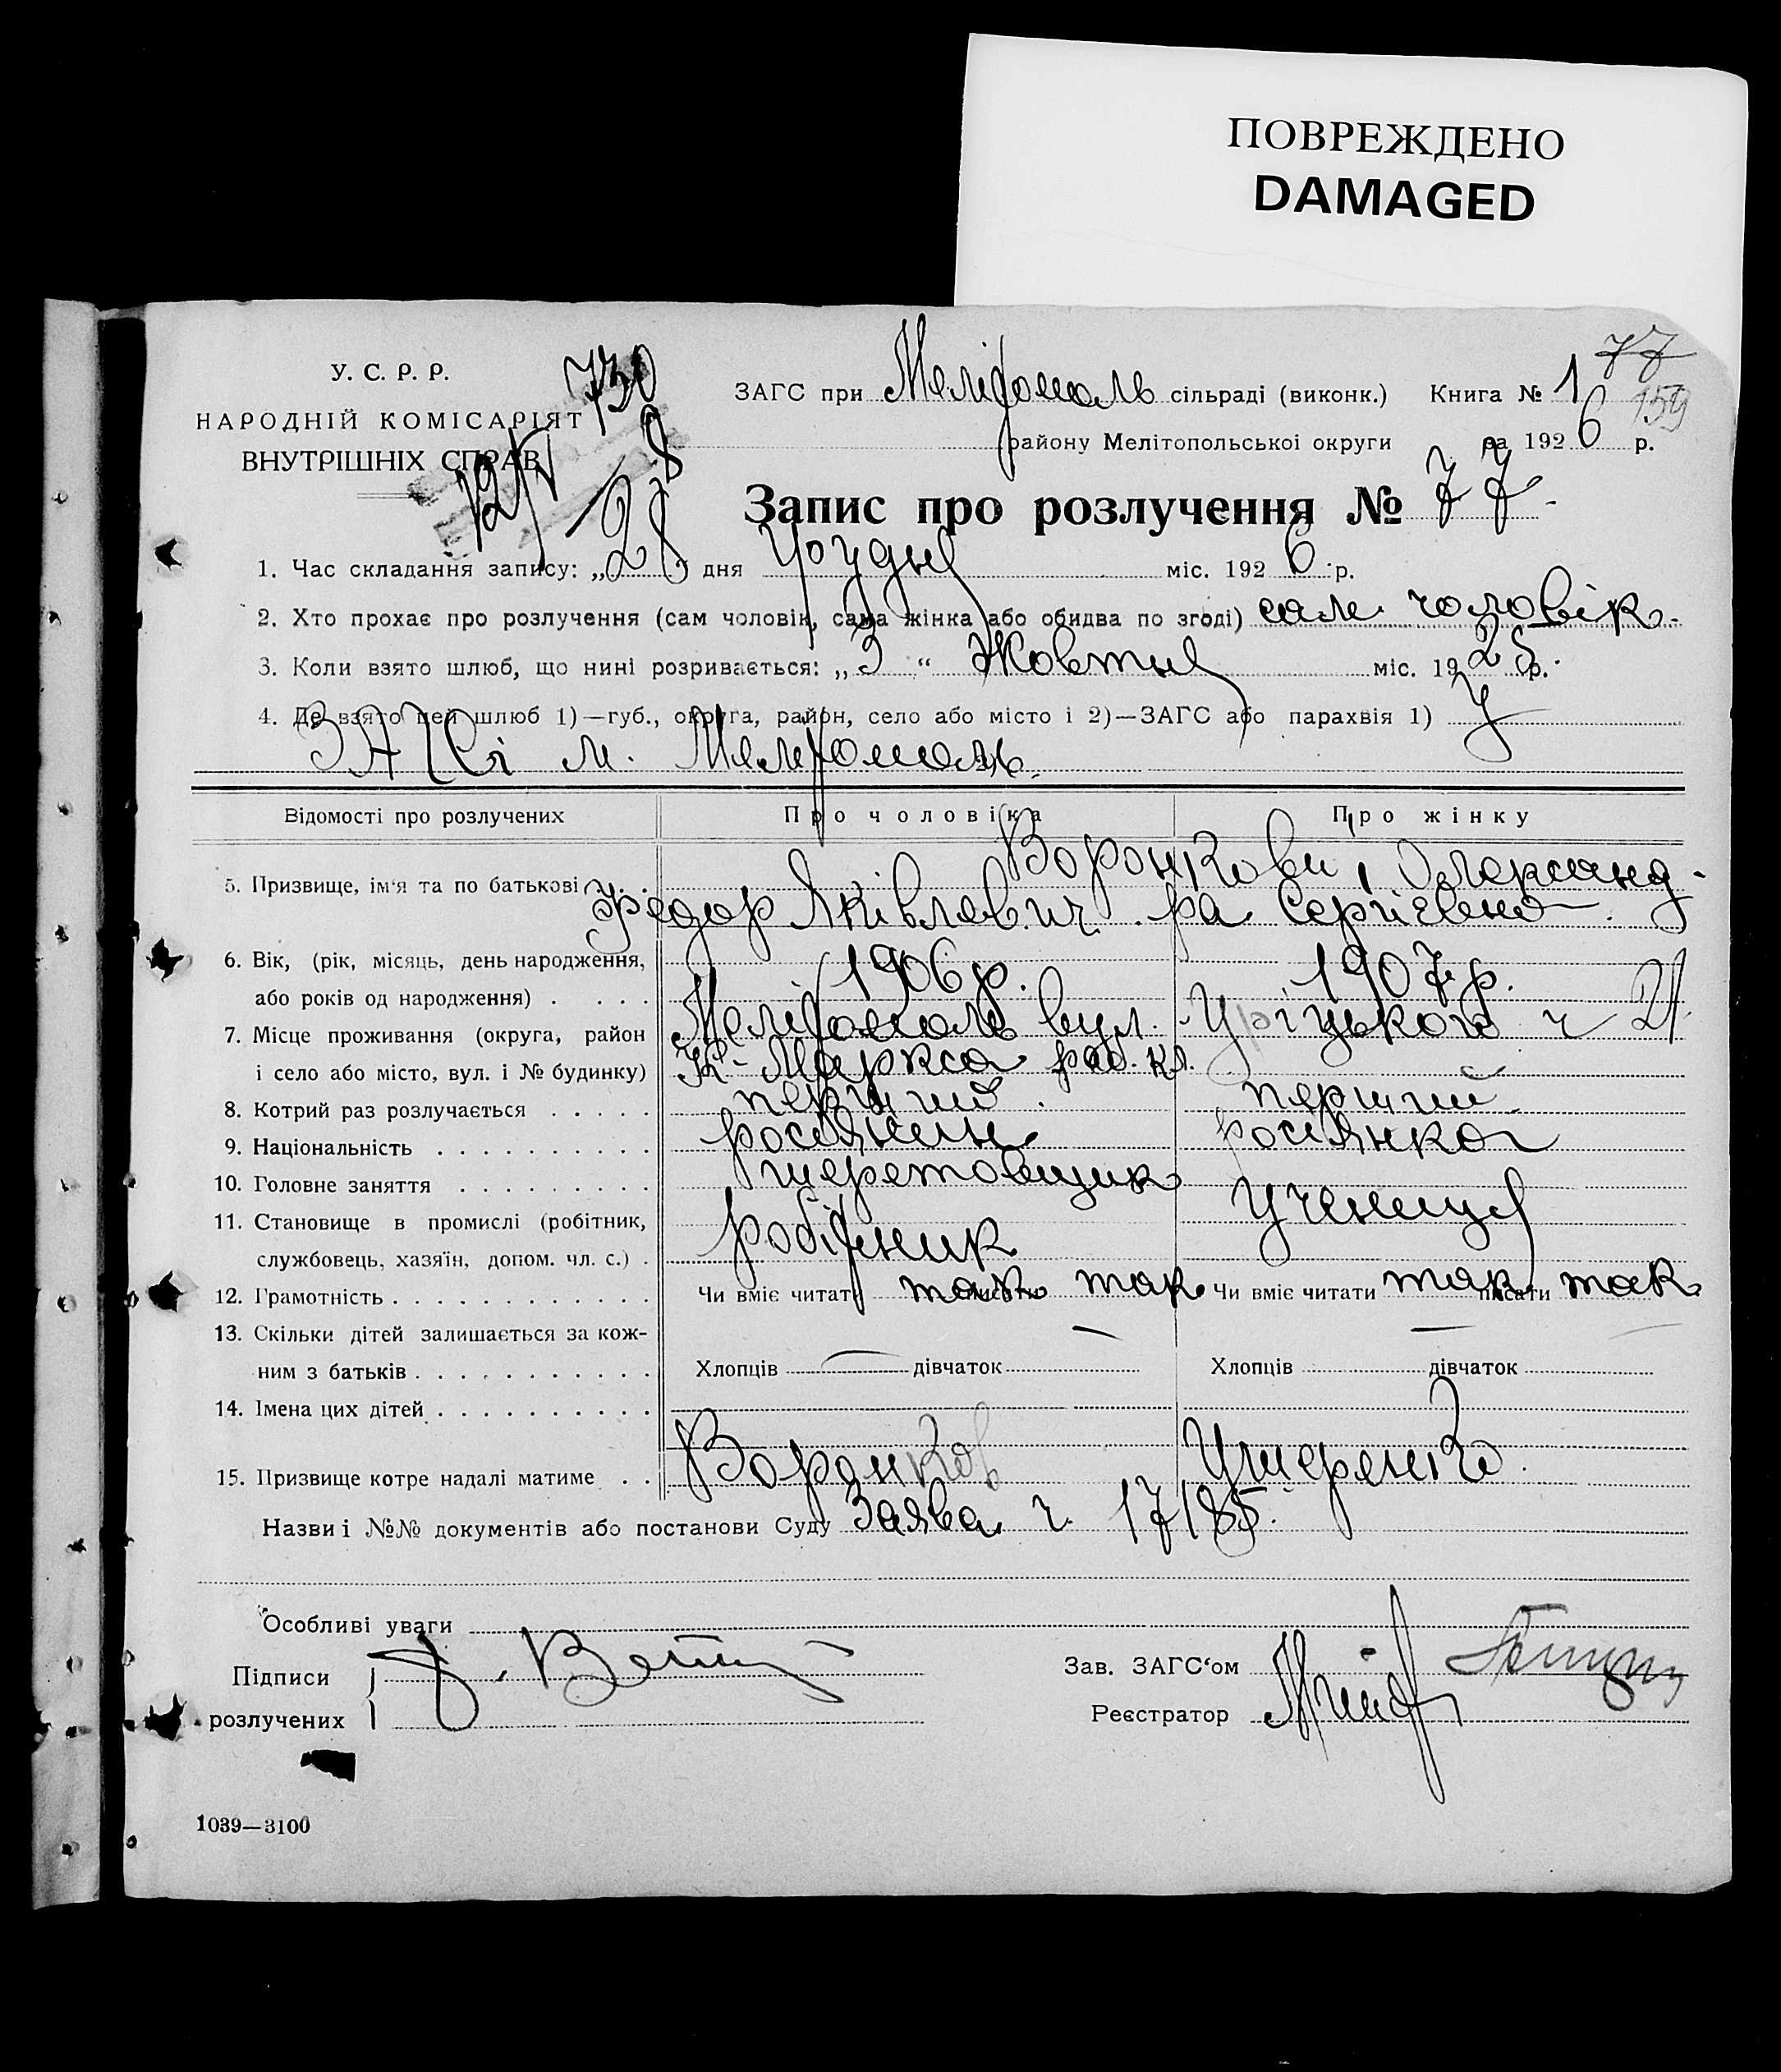 ПОВРЕЖДЕНО
DAMAGED
У. С. Р. Р.
НАРОДНІЙ КОМІСАРІЯТ
ВНУТРІШНІХ СПРАВ
730
12/V 28
ЗАГС при Мелітополь сільраді (виконк.) Книга № 1
77
159
району Мелітопольської округи за 1926 р.
Запис про розлучення № 77
1. Час складання запису: „28" дня Грудня міс. 1926 р.
2. Хто прохає про розлучення (сам чоловік, сама жінка або обидва по згоді) сам чоловік
3. Коли взято шлюб, що нині розривається: „3" Жовтня міс. 1925 р.
4. Де взято цей шлюб 1)—губ., округа, район, село або місто і 2)—ЗАГС або парахвія 1) У
ЗАГСі м. Мелітополь
Відомості про розлучених Про чоловіка Про жінку
5. Призвище, ім'я та по батькові Воронкови, Олександ-
Федор Яківлевич ра Сергієвна
6. Вік, (рік, місяць, день народження, 1906 р. 1907 р.
або років од народження)
7. Місце проживання (округа, район Мелітополь вул. Уріцького ч 21
і село або місто, вул. і № будинку) К-Маркса раб. кл.
8. Котрий раз розлучається перший перший
9. Національність росіянин росіянка
10. Головне заняття шеретовщик
11. Становище в промислі (робітник, робітник учениця
службовець, хазяїн, допом. чл. с.)
12. Грамотність Чи вміє читати так писати так Чи вміє читати так писати так
13. Скільки дітей залишається за кож-
ним з батьків Хлопців — дівчаток — Хлопців — дівчаток —
14. Імена цих дітей
15. Призвище котре надалі матиме Воронков
Назви і №№ документів або постанови Суду Заява ч. 17185.
Особливі уваги
Підписи
розлучених
Зав. ЗАГС'ом
Реєстратор
1039—3100